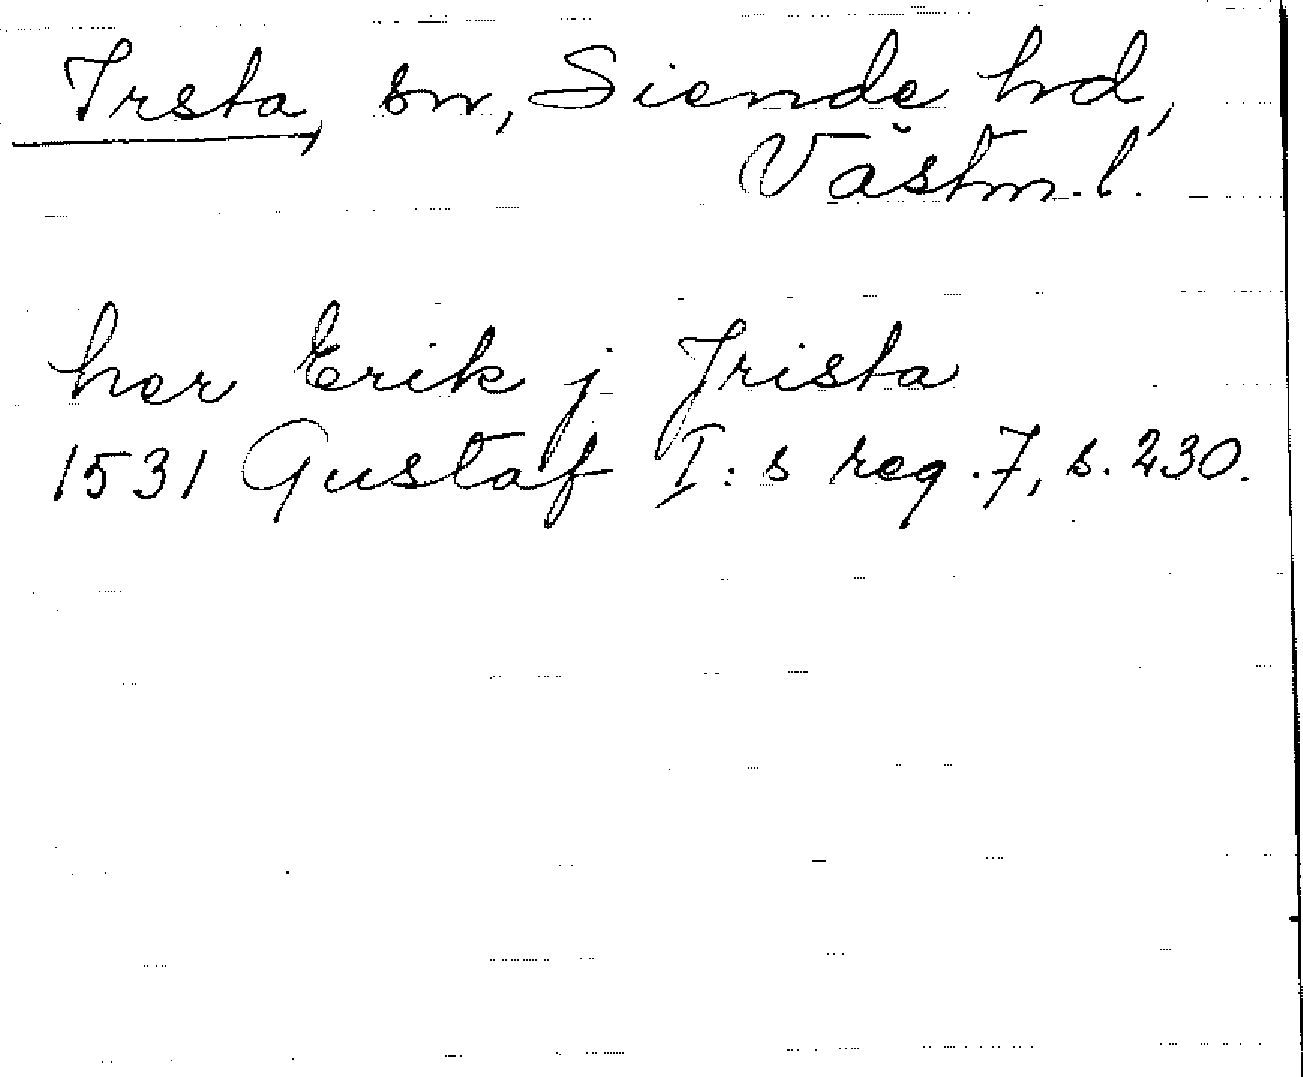 Irsta, sn, Siende hd,
Västm. l.
her Erik j Jrista
1531 Gustaf I: s reg. 7, s. 230.